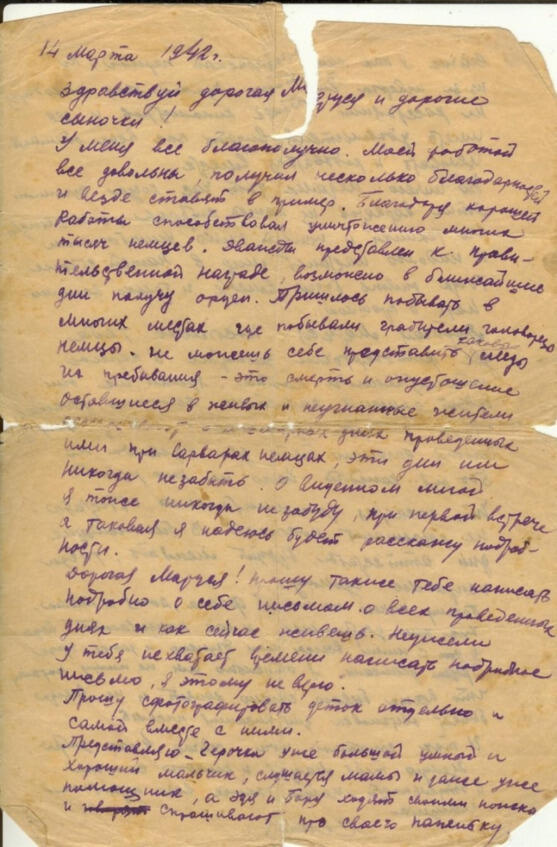 14 Марта 1942 г.
Здравствуй дорогая М уся и дорогие
сыночки!
У меня все благополучно. Моей работой
все довольны, получил несколько благодарностей
и везде ставят в пример. Благодаря хорошей
работы способствовал уничтожению многих
тысяч немцев. Дважды представлен к прави-
тельственной награде, возможно в ближайшие
дни получу орден. Пришлось побывать в
многих местах где побывали грабители головорезы
немцы. Не можешь себе представить какова следы
их пребывания - это смерть и опустошение
оставшиеся в живых и неугнанные жители
днях проведенных
ими при варварах немцах, эти дни им
никогда незабыть. О виденном мной
я тоже никогда незабуду, при первой встрече
а таковая я надеюсь будет расскажу подроб-
ности.
Дорогая Маруся! Прошу также тебе написать
подробно о себе письмом о всех проведенных
днях и как сейчас живешь. Неужели
у тебя нехватает времени написать подробное
письмо, я этому не верю.
Прошу сфотографировать деток отдельно и
самой вместе с ними.
Представляю - Герочка уже большой умный и
хороший мальчик, слушается мамы и даже уже
помощник, а Эдя и Боря ходят своими ножка
и спрашивают про своего папеньку